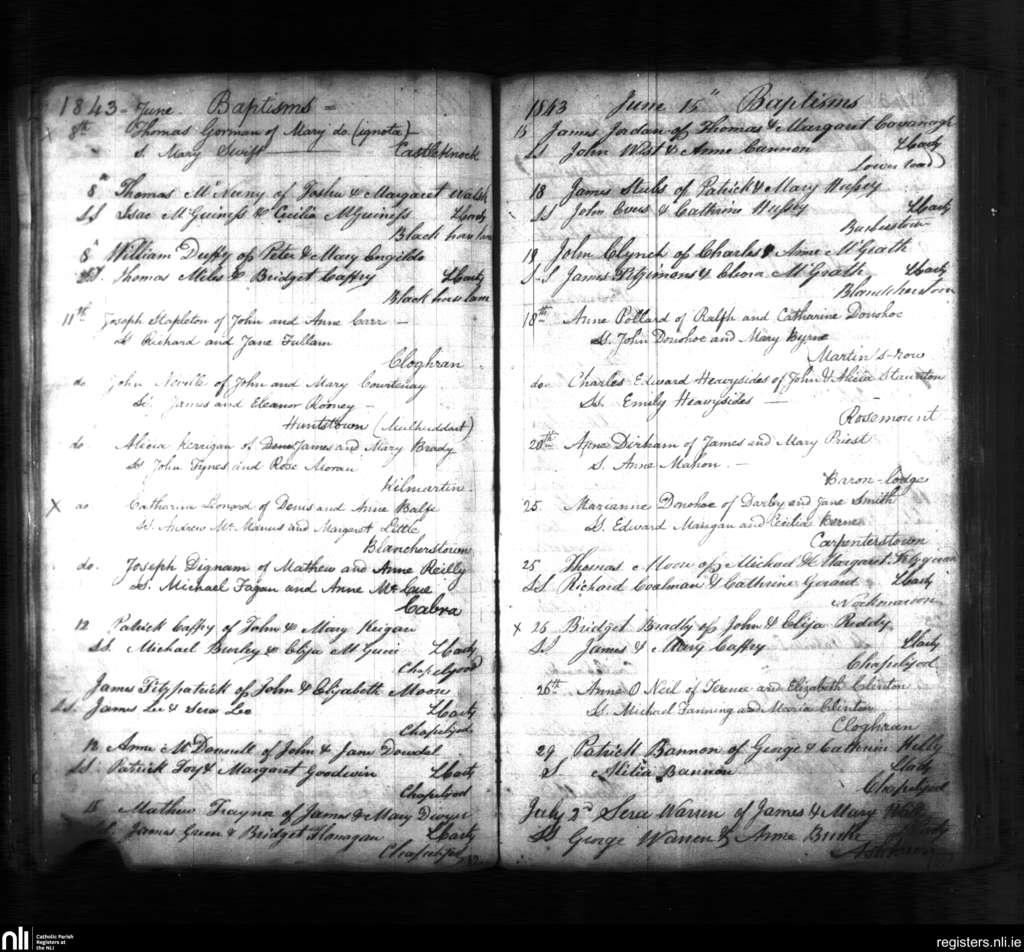 1843 = June Baptisms =
8th Thomas Gorman of Mary do. (ignota)
S. Mary Swift Castleknock
8th Thomas McNeny of & Margaret Walsh
SS Isac McGuiness & Cecilia McGuiness
Black horse lane
8th William Duffy of Peter & Mary
SS. Thomas Miles & Bridget Caffrey
Black horse lane
11th Joseph Stapleton of John and Anne Carr —
Ss Richard and Jane Fullam
Cloghran
do John Neville of John and Mary Courtenay
Ss. James and Eleanor Rooney —
Huntstown (Mulhuddart)
do Alicia Kerrigan of James and Mary Brady
Ss John Tynes and Rose Moran
Kilmartin
X do Catharine Leonard of Denis and Anne Balfe
Ss. Andrew Mc Manus and Margaret Little
Blancherstown
do. Joseph Dignam of Mathew and Anne Reilly
Ss. Michael Fagan and Anne
Cabra
12 Patrick Caffry of John & Mary Keigan
SS. Michael Burley & Eliza
Chapelizod
James Fitzpatrick of John & Elizabeth Moon
SS. James Lee & Sera Lee
Chapelizod
12 Anne McDonnell of John & Jane Dowdel
SS. Patrick Foy & Margaret Goodwin
Chapelizod
15 Mathew Traynor of James & Mary Dwyer
James Green & Bridget Flanagan
Chapelizod
1843 June 15th Baptisms
15 James Jordan of Thomas & Margaret Cavanagh
SS John West & Anne Cannon
Lower road
18 James Stubs of Patrick & Mary Hussey
SS John & Cathrine Hussey
19 John Clynch of Charles & Anne McGrath
S.S James & McGrath
Blanchardstown
18th Anne Pollard of Ralph and Catharine Donohoe
Ss. John Donohoe and Mary Byrne
Martin's-row
do Charles Edward Heavysides of John & Alicia Staunton
Ss. Emily Heavysides —
Rosemount
20th Anne Dirham of James and Mary Priest
S. Anne Mahon. —
Baron-lodge
25. Marianne Donohoe of Darby and Jane Smith
Ss. Edward Mangan and Cecilia
Carpenterstown
25 Thomas Moore of Michael & Margaret
SS Richard Coalman & Cathrine Geraud
X 25 Bridget Bradly of John & Eliza Reddy
SS James & Mary Caffry
Chapelizod
26th Anne O Neil of Terence and Elizabeth Clinton
Ss. Michael Fanning and Maria Clinton
Cloghran
29 Patrick Bannon of George & Cathrine Kelly
S. Bannon
Chapelizod
July 2d Sera Warren of James & Mary
SS George Warren & Anne
nli Catholic Parish
Registers at
the NLI
registers.nli.ie